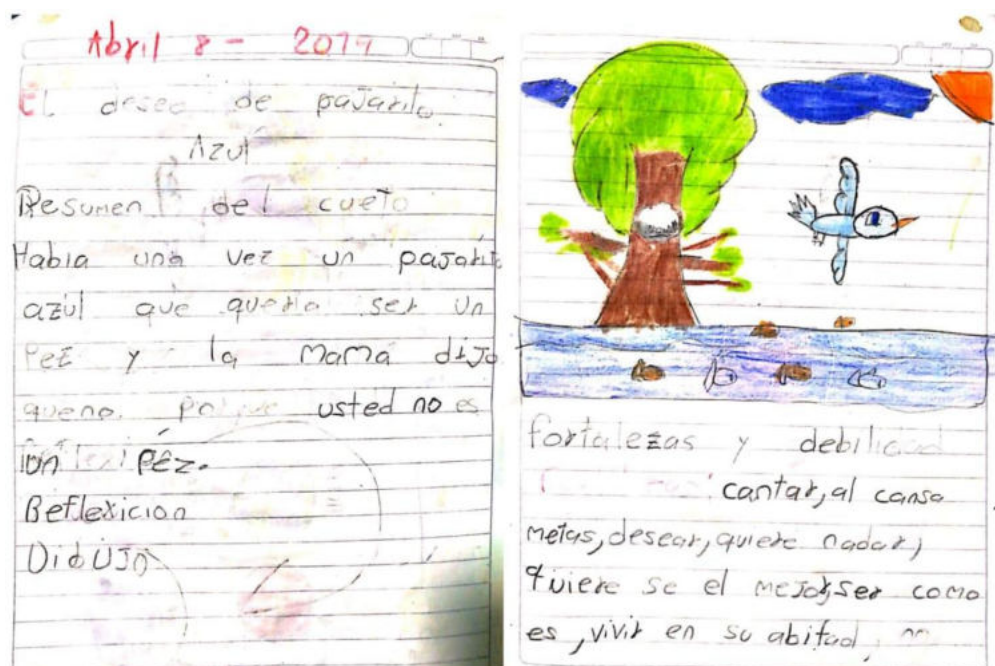 Abril 8 - 2019
El deseo de pajarito
Azul
Resumen del cueto
Había una vez un pajarito
azul que queria ser un
Pez y la mamá dijo
queno. porque usted no es
un péz.
Reflexicion
Didujo
fortalezas y debilidad
cantar, al cansa
metas, desear, quiere nadar,
quiere se el mejor, ser como
es, vivir en su abitad, no